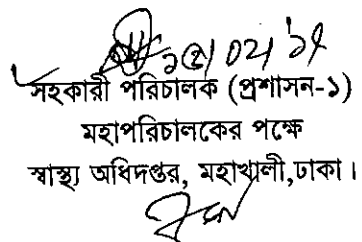 ১৫/০২/১৭
সহকারী পরিচালক (প্রশাসন-১)
মহাপরিচালকের পক্ষে
স্বাস্থ্য অধিদপ্তর, মহাখালী,ঢাকা।